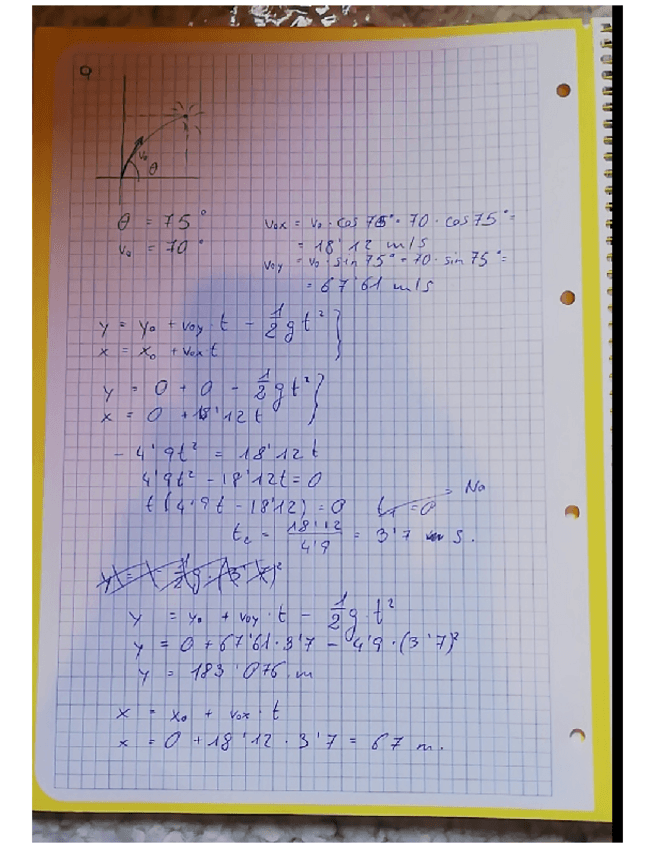 9
v₀
θ
θ = 75°
v₀ = 70°
v₀x = v₀ · cos 75° = 70 · cos 75° =
= 18'12 m/s
v₀y = v₀ · sin 75° = 70 · sin 75° =
= 67'61 m/s
y = y₀ + v₀y · t - 1/2 g t² }
x = x₀ + v₀x t
y = 0 + 0 - 1/2 g t² }
x = 0 + 18'12 t
- 4'9t² = 18'12t
4'9t² - 18'12t = 0
t (4'9t - 18'12) = 0 t₁ = 0 → No
t₂ = 18'12/4'9 = 3'7 s.
y = - 1/2 g · (3'7)²
y = y₀ + v₀y · t - 1/2 g · t²
y = 0 + 67'61 · 3'7 - 4'9 · (3'7)²
y = 183'076 m
x = x₀ + v₀x · t
x = 0 + 18'12 · 3'7 = 67 m.